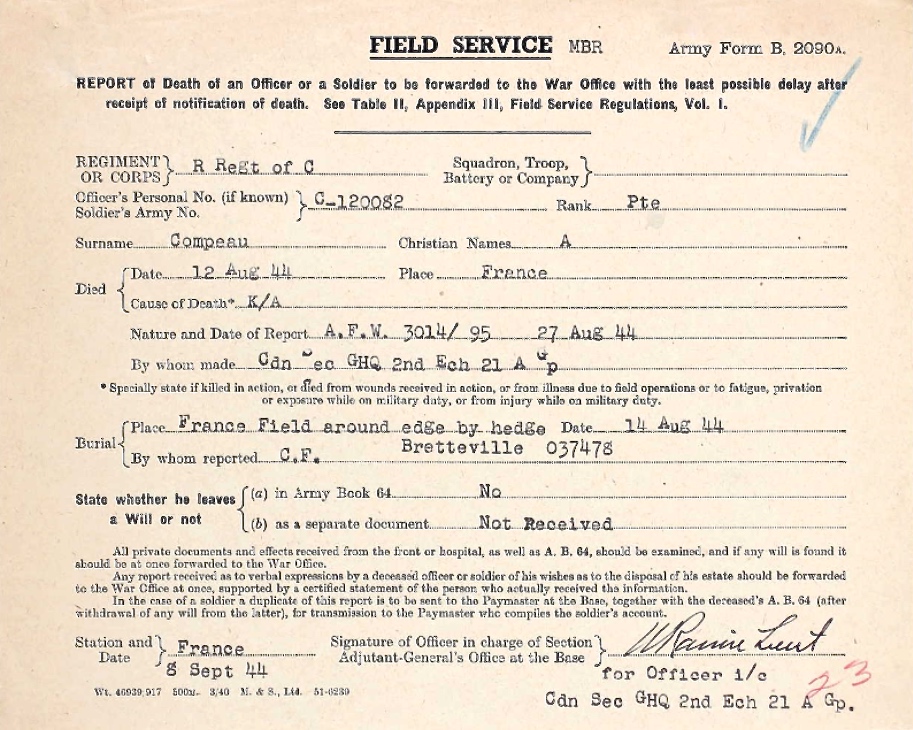 FIELD SERVICE MBR Army Form B. 2090A.
REPORT of Death of an Officer or a Soldier to be forwarded to the War Office with the least possible delay after
receipt of notification of death. See Table II, Appendix III, Field Service Regulations, Vol. I.
REGIMENT OR CORPS} R Regt of C Squadron, Troop, Battery or Company}
Officer's Personal No. (if known) Soldier's Army No. } C-120082 Rank Pte
Surname Compeau Christian Names A
Died { Date 12 Aug 44 Place France
Cause of Death* K/A
Nature and Date of Report A.F.W. 3014/ 95 27 Aug 44
By whom made Cdn Sec GHQ 2nd Ech 21 A Gp
* Specially state if killed in action, or died from wounds received in action, or from illness due to field operations or to fatigue, privation
or exposure while on military duty, or from injury while on military duty.
Burial { Place France Field around edge by hedge Date 14 Aug 44
Bretteville 037478
By whom reported C.F.
State whether he leaves a Will or not { (a) in Army Book 64 No
(b) as a separate document Not Received
All private documents and effects received from the front or hospital, as well as A. B. 64, should be examined, and if any will is found it
should be at once forwarded to the War Office.
Any report received as to verbal expressions by a deceased officer or soldier of his wishes as to the disposal of his estate should be forwarded
to the War Office at once, supported by a certified statement of the person who actually received the information.
In the case of a soldier a duplicate of this report is to be sent to the Paymaster at the Base, together with the deceased's A. B. 64 (after
withdrawal of any will from the latter), for transmission to the Paymaster who compiles the soldier's account.
Station and Date } France Signature of Officer in charge of Section Adjutant-General's Office at the Base } Lieut
8 Sept 44 for Officer i/c
Wt. 46939/917 500M. 3/40 M. & S., Ltd. 51-6239 23
Cdn Sec GHQ 2nd Ech 21 A Gp.